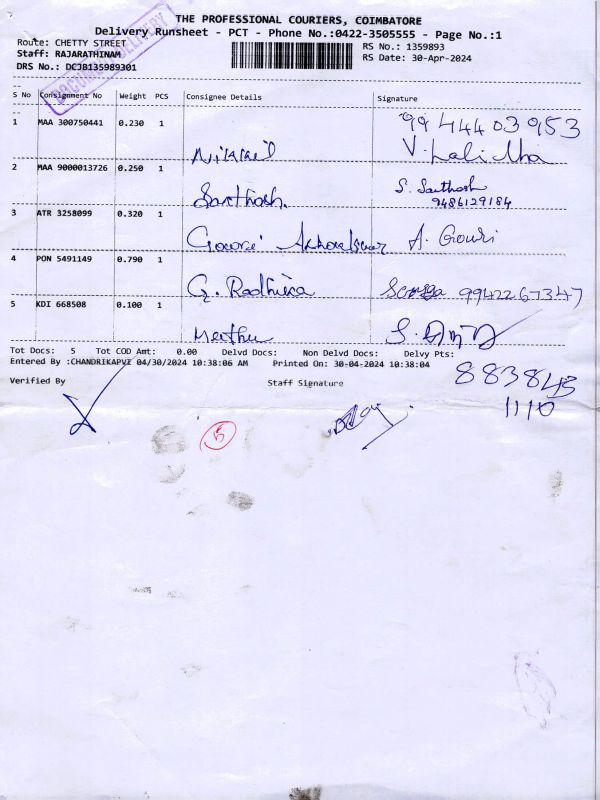 THE PROFESSIONAL COURIERS, COIMBATORE
Delivery Runsheet - PCT - Phone No.:0422-3505555 - Page No.:1
Route: CHETTY STREET RS No.: 1359893
Staff: RAJARATHINAM RS Date: 30-Apr-2024
DRS No.: DCJB135989301
DOCUMENT DELIVERY
S No Consignment No Weight PCS Consignee Details Signature
1 MAA 300750441 0.230 1 9944403953
V. Lalitha
2 MAA 9000013726 0.250 1 Santhosh. S. Santhosh
9486129184
3 ATR 3258099 0.320 1 Gowri A. Gouri
4 PON 5491149 0.790 1 G. Radhika 9942267347
5 KDI 668508 0.100 1
Tot Docs: 5 Tot COD Amt: 0.00 Delvd Docs: Non Delvd Docs: Delvy Pts:
Entered By :CHANDRIKAPVZ 04/30/2024 10:38:06 AM Printed On: 30-04-2024 10:38:04
Verified By Staff Signature
883843
1110
5